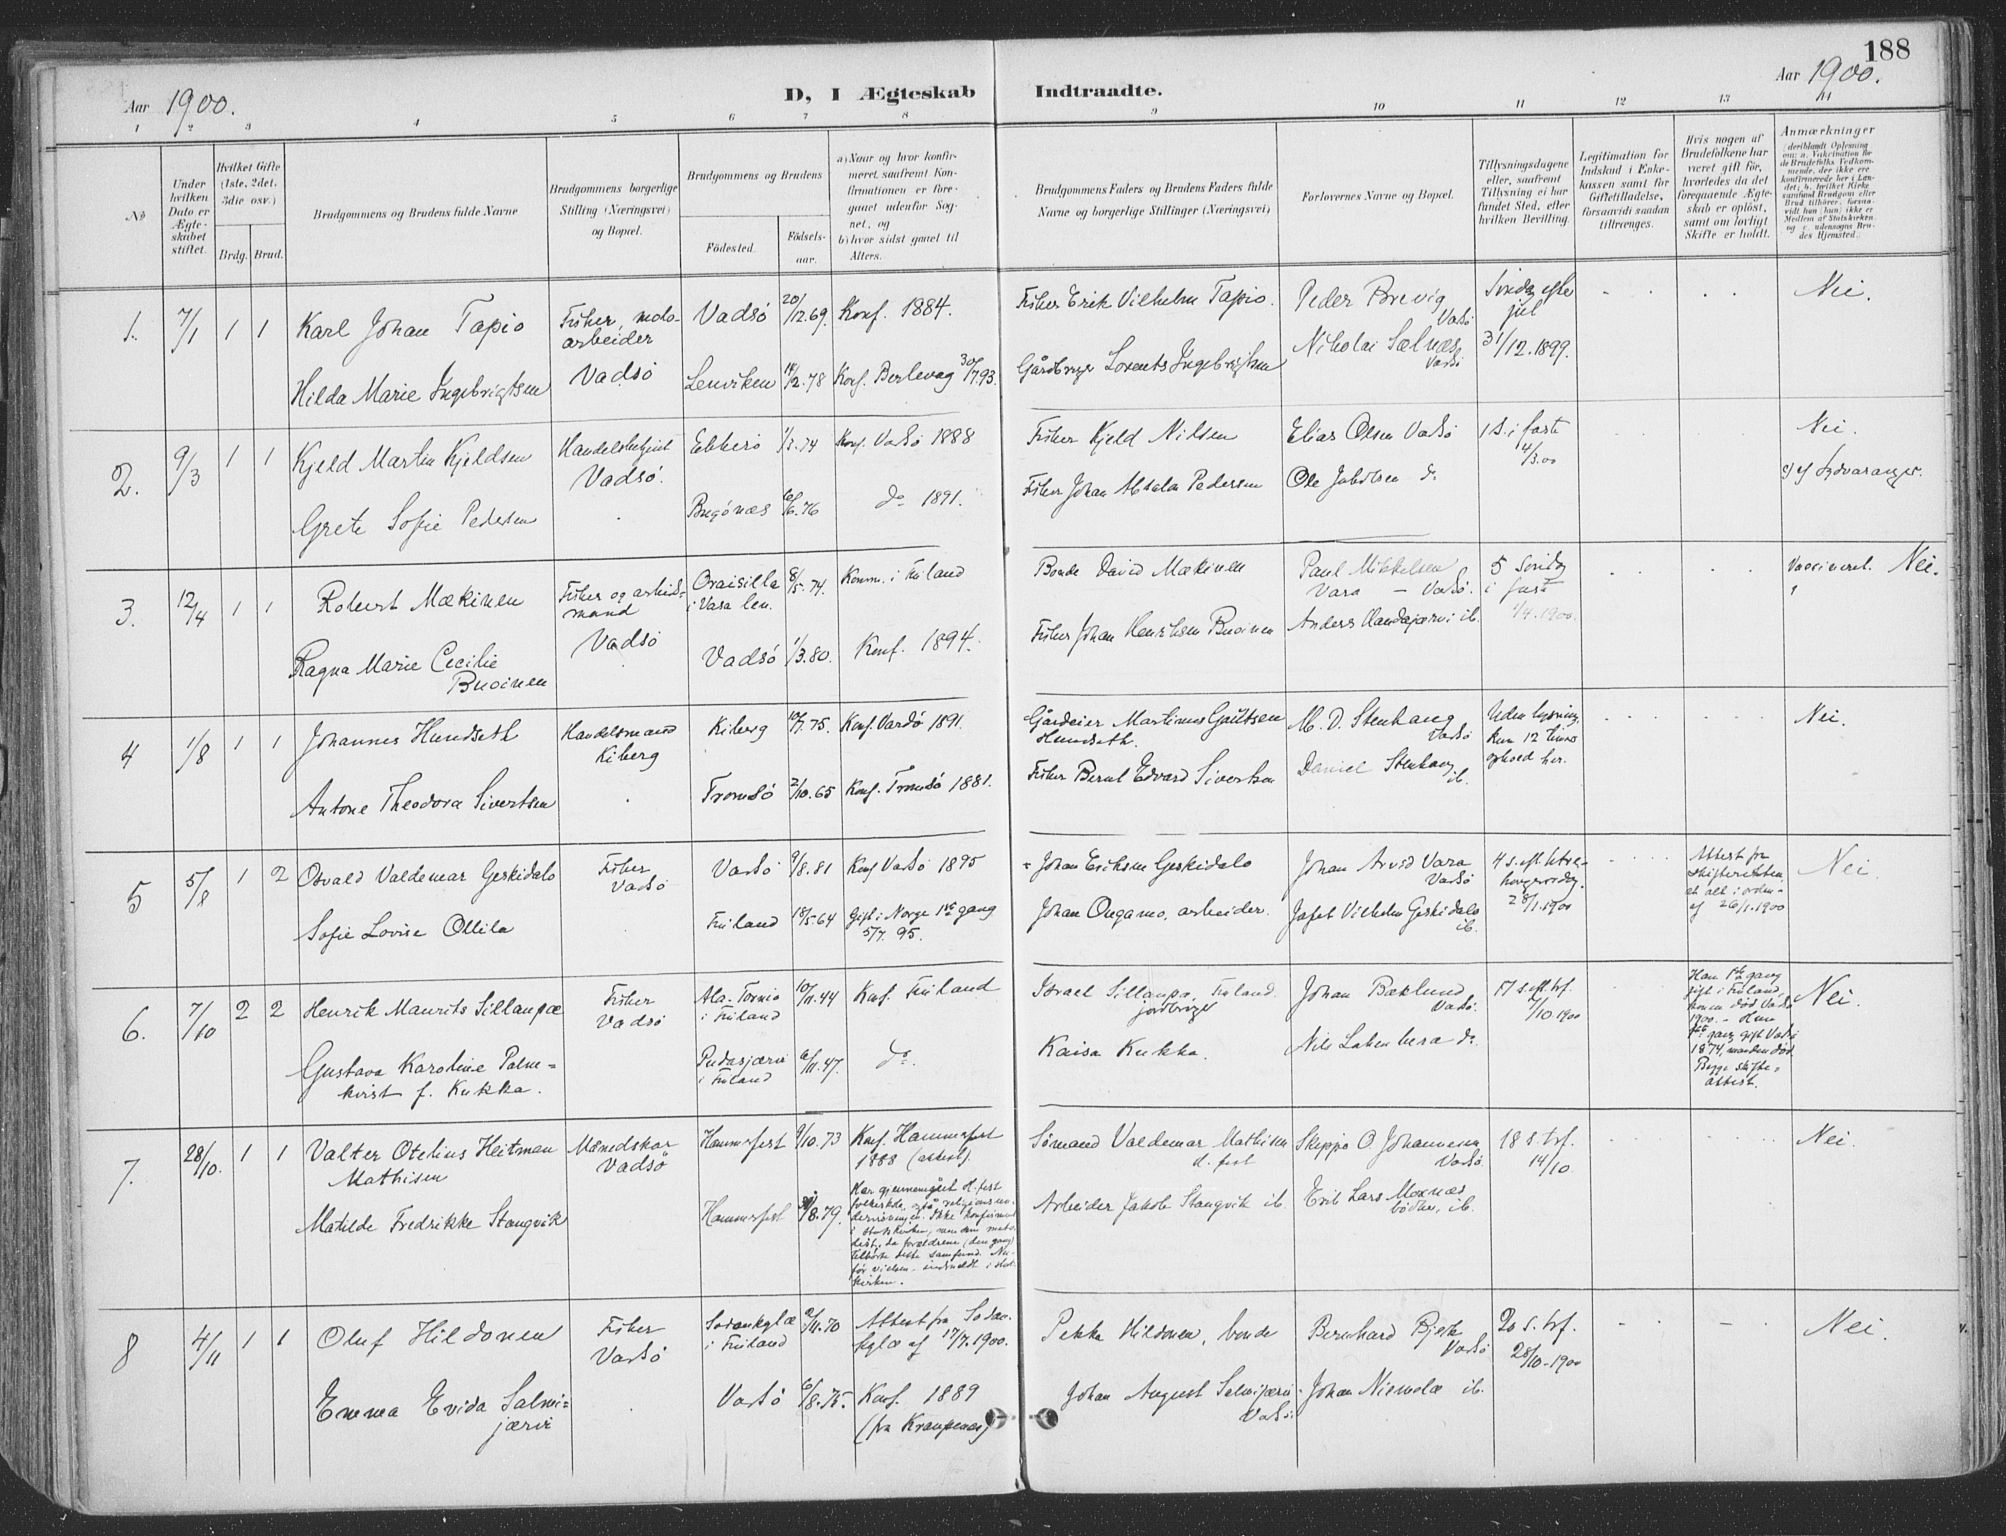 188
Aar 1900.
D, I Ægteskab Indtraadte.
Aar 1900.
1 2 3 4 5 6 7 8 9 10 11 12 13 14
№
Under hvilken Dato er Ægteskabet stiftet.
Hvilket Gifte (1ste, 2det, 3die osv.)
Brdg. Brud.
Brudgommens og Brudens fulde Navne
Brudgommens borgerlige Stilling (Næringsvei) og Bopæl.
Brudgommens og Brudens
Fødested.
Fødselsaar.
a) Naar og hvor konfirmeret, saafremt Konfirmationen er foregaaet udenfor Sognet, og
b) hvor sidst gaaet til Alters.
Brudgommens Faders og Brudens Faders fulde Navne og borgerlige Stillinger (Næringsvei)
Forlovernes Navne og Bopæl.
Tillysningsdagene eller, saafremt Tillysning ei har fundet Sted, efter hvilken Bevilling.
Legitimation for Indskud i Enkekassen samt for Giftetilladelse, forsaavidt saadan tiltrænges.
Hvis nogen af Brudefolkene har været gift før, hvorledes da det foregaaende Ægteskab er opløst, samt om lovligt Skifte er holdt.
Anmærkninger
1. 7/1 1 1 Karl Johan Tapio
Fisker, mdo-
arbeider
Vadsö
Vadsö 20/12.69. Konf. 1884.
Fisker Erik Vilhelm Tapio.
Peder Brevig
Vadsö
Søndag efter
jul
31/12.1899.
Nei.
Hilda Marie Ingebrigtsen
Lenviken 14/2.78 Konf. Berlevag 30/7.93.
Gårdbruger Lorents Ingebrigtsen
Nikolai Sælnæs
Vadsö
2. 9/3 1 1 Kjeld Martin Kjeldsen
Handelsbetjent
Vadsö.
Ekkerö 1/3.74 Konf. Vadsö 1888
Fisker Kjeld Nilsen
Elias Olsen Vadsö
1 S. i faste
4/3.00
Nei.
Grete Sofie Pedersen
Bugönæs 6/6.76 do 1891.
Fisker Johan Absalon Pedersen
Ole Jakobsen do
c) af Sydvaranger.
3. 12/4 1 1 Robert Mækinen
Fisker og arbeids-
mand
Vadsö
Oraisilla
i Vasa len.
8/5.74. Konem. i Finland
Bonde David Mækinen
Paul Mikkelsen
Vara – Vadsö.
5 Søndag
i faste
1/4.1900.
Vaccineret. Nei.
Ragna Marie Cecilie
Buoinen
Vadsö 1/3.80. Konf. 1894.
Fisker Johan Henriksen Buoinen
Anders Vandajærvi ib.
4 1/8 1 1 Johannes Hundseth
Handelsmand
Kiberg
Kiberg 10/7.75. Konf. Vardö 1891.
Gårdeier Martinus Gjultsen
Hundseth.
M. D. Stenhaug
Vadsö
Uden lysning,
kun 12 timers
ophold her.
Nei.
Antone Theodora Sivertsen
Tromsö 2/10.65 Konf. Tromsö 1881.
Fisker Bernt Edvard Sivertsen
Daniel Stenhaug
ib.
5 5/8 1 2 Osvald Valdemar Geskidalo
Fisker
Vadsö
Vadsö 9/8.81 Konf Vadsö 1895
Johan Eriksen Geskidalo
Johan Arvid Vara
Vadsö
4 s. eft. h. tre-
kongersdag.
28/1.1900
Attest fra
skifteretten
at alt i orden
af 26/1.1900
Nei.
Sofie Lovise Ollila
Finland 18/5.64 Gift i Norge 1ste gang
5/7. 95.
Johan Ongamo, arbeider.
Jafet Vilhelm Geskidalo
ib.
6. 7/10 2 2 Henrik Maurits Sillanpæ
Fisker
Vadsö
Ala-Tornio
i Finland
10/11.44 Konf. Finland
Israel Sillanpæ, Finland.
jordbruger
Johan Bæklund
Vadsö.
17 s. eft. trf.
7/10 1900
Han 1ste gang
gift i Finland,
konen död Vadsö
1900. – Hun
1ste gang gift Vadsö
1874, manden död.
Begge skifte-
attest.
Nei.
Gustava Karoline Palm-
kvist f. Kukka.
Pudasjærvi
i Finland
6/11.47. do.
Kaisa Kukka.
Nils Lakenbera do
7. 28/10. 1 1 Valter Otelius Heitman
Mathisen
Mænedskar
Vadsö
Hammerfest 9/10.73 Konf. Hammerfest
1888 (attest).
Sömand Valdemar Mathisen
H. fest
Skippo O. Johannesen
Vadsö.
18 s. trf.
14/10
Nei.
Matilde Fredrikke Stangvik
Hammerfest /8.79.
Har gjennemgået H. fest
folkeskole, også religionsun-
dervisningen. Ikke konfirmeret
i statskirken, men den meto-
dist., da forældrene (den gang)
tilhørte dette samfund. Nu
før vielsen indmeldt i stats-
kirken.
Arbeider Jakob Stangvik ib.
Erik Lars Moxnæs
bödker, ib.
8 4/11 1 1 Oluf Hildonen
Fisker
Vadsö
Sodankylæ
i Finland
9/11.70 Attest fra Sodan-
kylæ af 17/7.1900.
Pekka Hildonen, bonde
Bernhard Bjerk
Vadsö
20 s. trf.
28/10-1900
Nei.
Emma Evida Salmi-
jærvi
Vadsö 6/8.75. Konf. 1889
(fra Krampenæs)
Johan August Salmijærvi
Vadsö.
Johan Niemelæ ib.